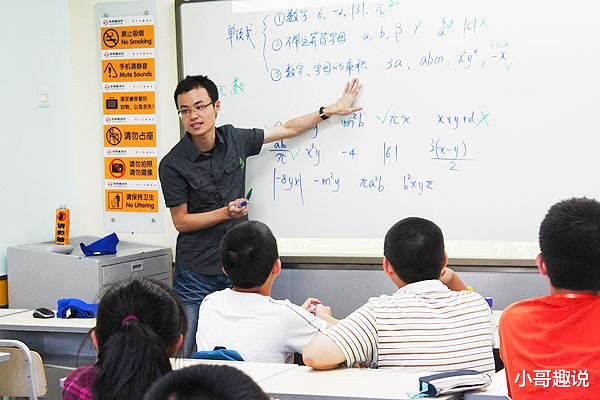 禁止吸烟
No Smoking
手机请静音
Mute Sounds
请勿占座
请勿拍照
请勿摄像
请保持卫生
No Littering
单项式
① 数字 6, -2, |3|, π
② 不带运算符字母 a, b, β, γ
③ 数字、字母的乘积 3a, abm,
元数
m²b ✓ πx x+y+d X
ab/π ✓ x²y -4 |6| 3(x-y)/2
|-8yx| -m²y πa²b b²xyz
小哥趣说